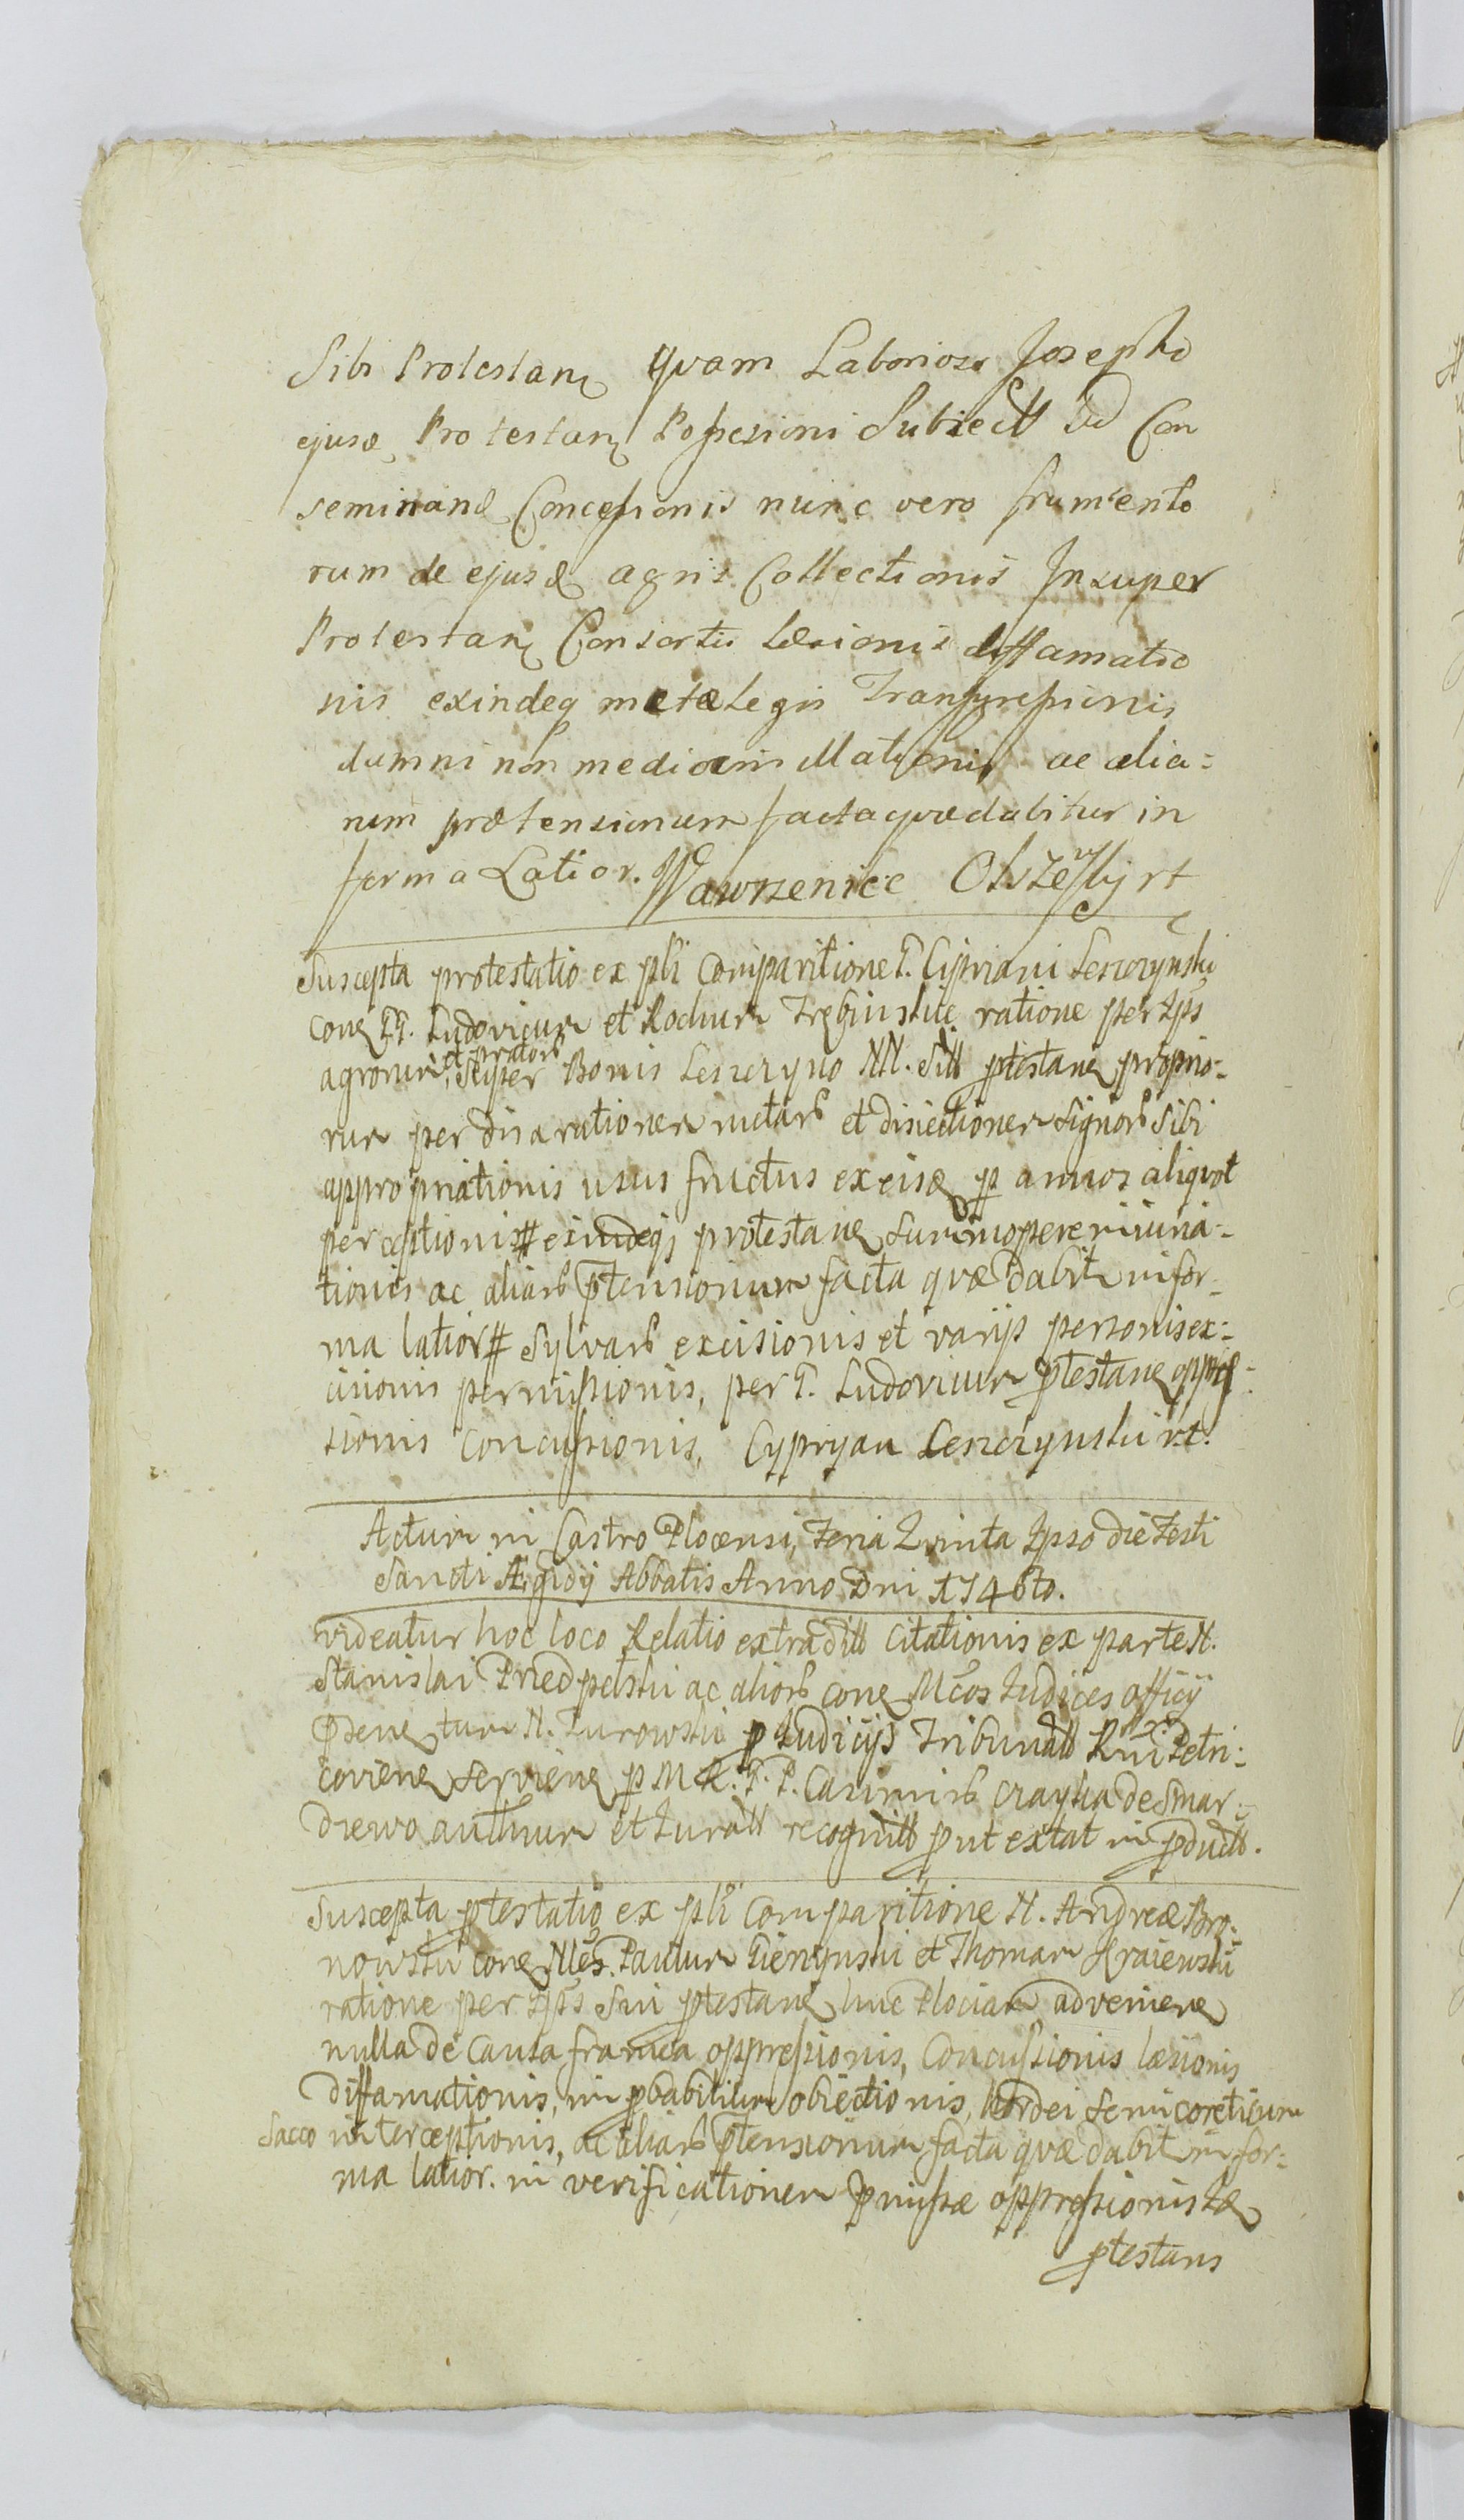 Sibi Protestan quam Laborioso Josepho
ejusd Protestan Possesioni Subiectt ad Con
seminand Concessionis nunc vero frumento
rum de ejusd agris Collectionis Insuper
Protestan Consortis Læsionis diffamatio
nis exindeq metæ Legis Transgressionis
damni non mediocris illationis ac alia=
rum prætensionum facta quæ dabitur in
forma Latior. Wawrzeniec Olszewsky rt
Suscepta protestatio ex pli Comparitione G. Cipriani Leszczynski
cone GG. Ludovicum et Rochum Trębinskie ratione per Ips
agrorum et pratorb Super Bonis Leszczyno NN. Sitt ptestane proprio=
rum per disarationem metarb et disiectionem Signorb Sibi
appropriationis usus fructus ex eisd p annos aliquot
perceptionis # exindeqz protestane summopere iniuria=
tionis ac aliarb ptensionum facta quæ dabitr in for=
ma latior # Sylvarb excisionis et varijs personis ex=
cisionis permissionis, per G. Ludovicum ptestane oppres=
sionis concussionis, Cypryan Leszczynski rt.
Actum in Castro Plocensi, Feria Quinta Ipso die Festi
Sancti Ægidij Abbatis Anno Dni 1746to.
videatur hoc loco Relatio extraditt Citationis ex parte N.
Stanislai Przedpelski ac aliorb cone Mcos Judices officij
pdene tum N. Turowski p Judicijs Tribunatt Rni Petri=
coviene serviene p M R. G. P. Casimirb Czayka de Smar=
drewo authum et Juratt recognitt put extat in pductt.
Suscepta ptestatio ex pli Comparitione N. Andreæ Bro=
nowski cone Nles. Paulum Gierzynski et Thomam Kraiewski
ratione per Ips Sui ptestane huc Plociam adveniene
nulla de causa franca oppressionis, Concussionis læsionis
diffamationis, in pbabilium obiectionis, hordei semicoretium
Sacco interceptionis, ac aliarb ptensionum facta quæ dabitr in for=
ma latior. in verificationem pmissæ oppressionis Id
ptestans